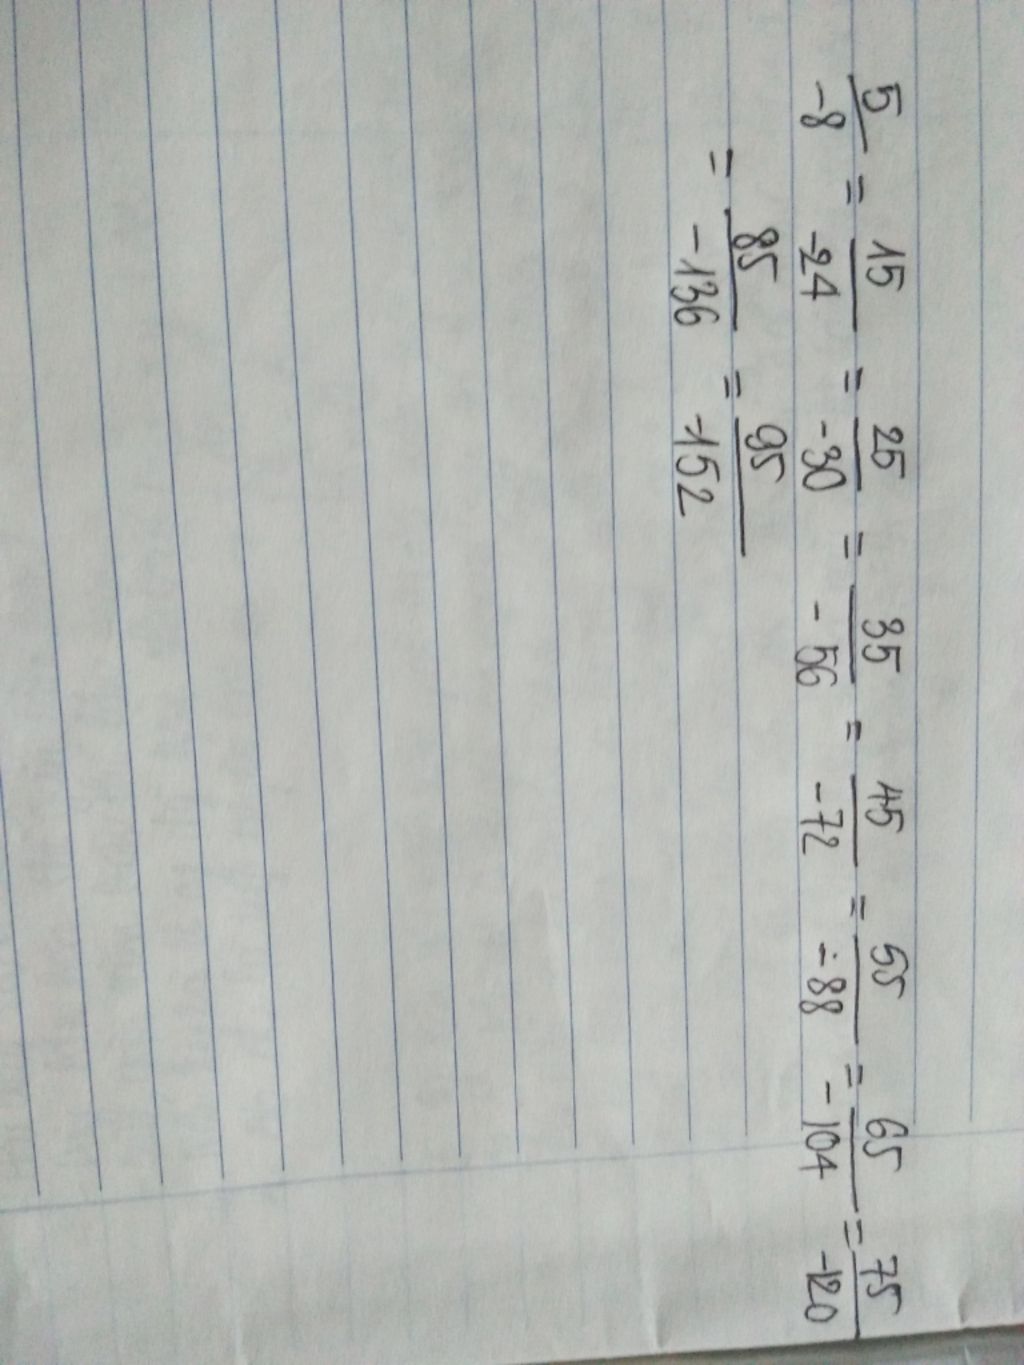 5/-8 = 15/-24 = 25/-30 = 35/-56 = 45/-72 = 55/-88 = 65/-104 = 75/-120
= 85/-136 = 95/-152